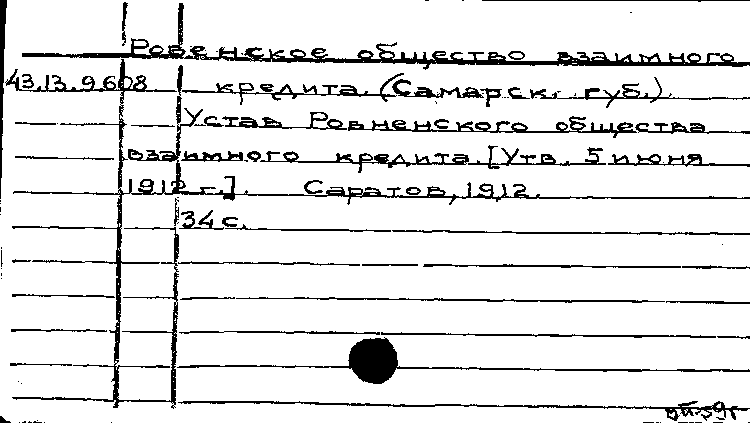 Ровенское общество взаимного
43.13.9608 кредита. (Самарск. губ.).
Устав Ровненского общества
взаимного кредита. [Утв. 5 июня
1912 г.]. Саратов, 1912.
34 с.